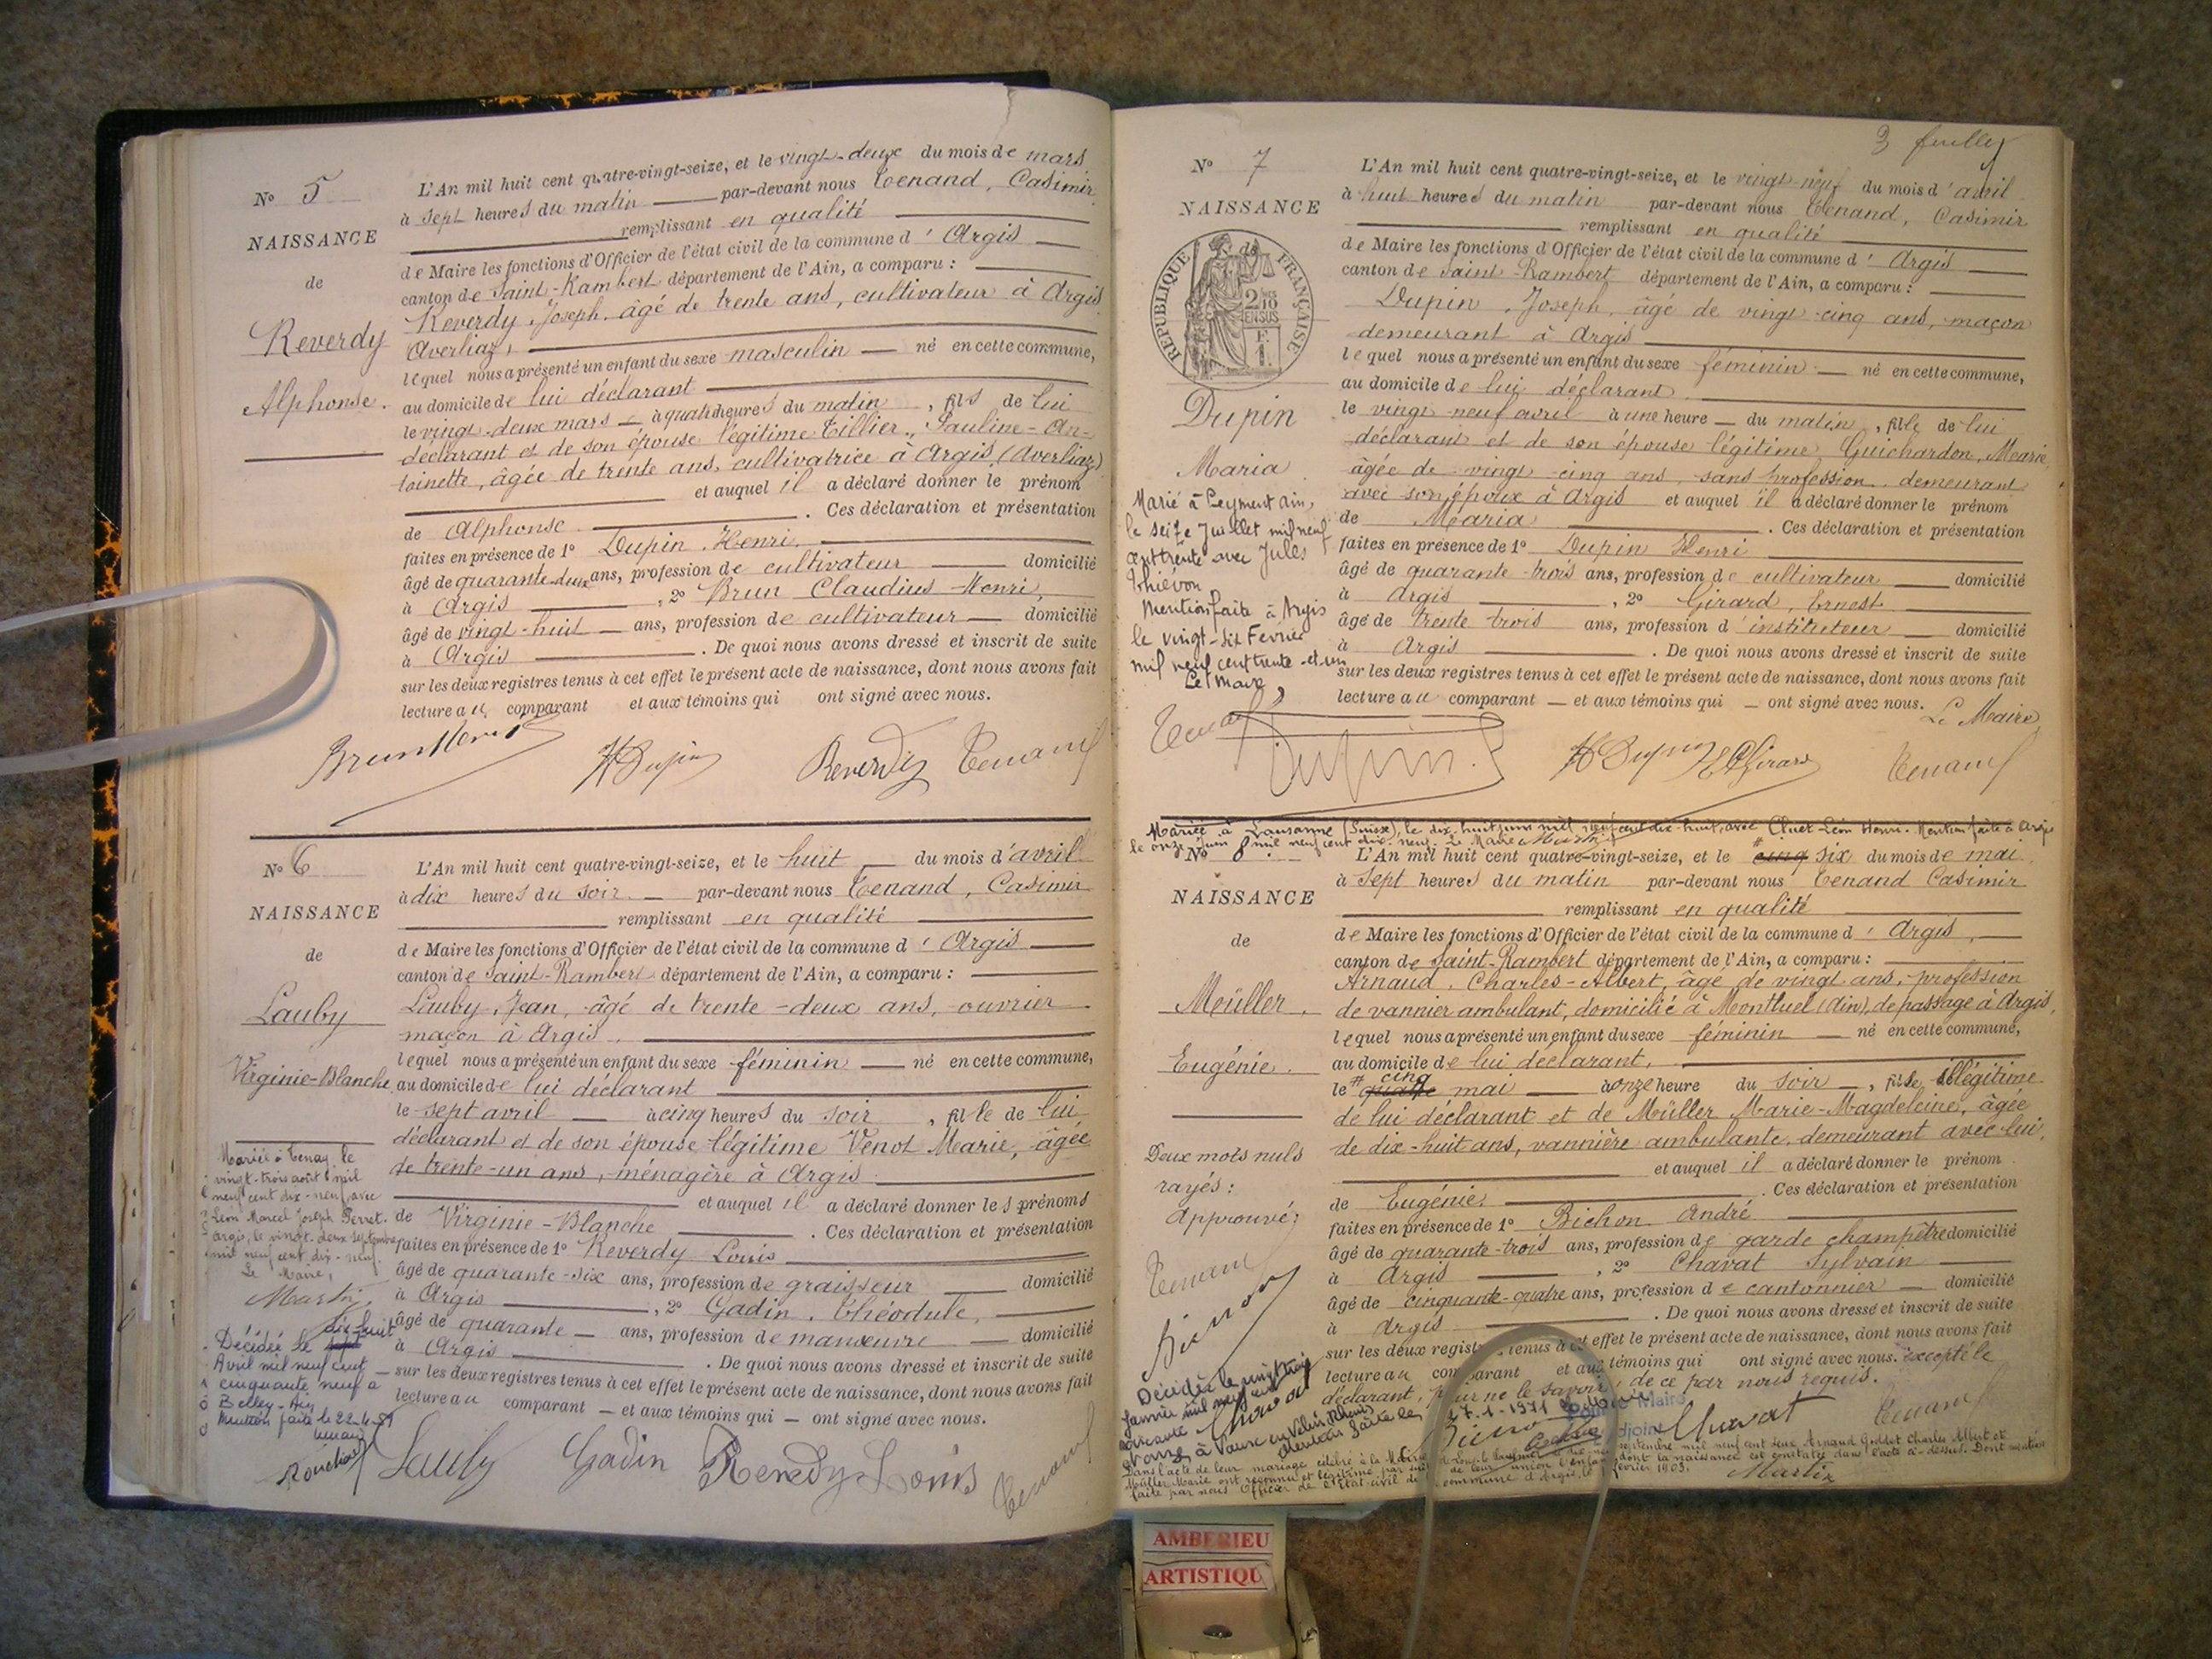 N° 5
NAISSANCE
de
Reverdy
Alphonse.
L'An mil huit cent quatre-vingt-seize, et le vingt-deux du mois de mars
à sept heures du matin par-devant nous Tenand, Casimir
remplissant en qualité
de Maire les fonctions d'Officier de l'état civil de la commune d'Argis
canton de Saint-Rambert département de l'Ain, a comparu :
Reverdy, Joseph, âgé de trente ans, cultivateur à Argis
Averliaz,
lequel nous a présenté un enfant du sexe masculin né en cette commune,
au domicile de lui déclarant
le vingt-deux mars à quatre heures du matin, fils de lui
déclarant et de son épouse légitime Tillier, Pauline-An-
toinette, âgée de trente ans, cultivatrice à Argis, (Averliaz)
et auquel il a déclaré donner le prénom
de Alphonse . Ces déclaration et présentation
faites en présence de 1° Dupin, Henri,
âgé de quarante-deux ans, profession de cultivateur domicilié
à Argis , 2° Brun Claudius-Henri,
âgé de vingt-huit ans, profession de cultivateur domicilié
à Argis . De quoi nous avons dressé et inscrit de suite
sur les deux registres tenus à cet effet le présent acte de naissance, dont nous avons fait
lecture au comparant et aux témoins qui ont signé avec nous.
Brun Henri H Dupin Reverdy Tenand
N° 6
NAISSANCE
de
Lauby
Virginie-Blanche
L'An mil huit cent quatre-vingt-seize, et le huit du mois d'avril
à dix heures du soir par-devant nous Tenand, Casimir
remplissant en qualité
de Maire les fonctions d'Officier de l'état civil de la commune d'Argis
canton de Saint-Rambert département de l'Ain, a comparu :
Lauby, Jean, âgé de trente-deux ans, ouvrier
maçon à Argis.
lequel nous a présenté un enfant du sexe féminin né en cette commune,
au domicile de lui déclarant
le sept avril à cinq heures du soir, fille de lui
déclarant et de son épouse légitime Venot Marie, âgée
de trente-un ans, ménagère à Argis
et auquel il a déclaré donner les prénoms
de Virginie-Blanche . Ces déclaration et présentation
faites en présence de 1° Reverdy Louis
âgé de quarante-six ans, profession de graisseur domicilié
à Argis , 2° Gadin, Théodule,
âgé de quarante ans, profession de manœuvre domicilié
à Argis . De quoi nous avons dressé et inscrit de suite
sur les deux registres tenus à cet effet le présent acte de naissance, dont nous avons fait
lecture au comparant et aux témoins qui ont signé avec nous.
Mariée à Tenay le
vingt-trois août mil
neuf cent dix-neuf avec
Léon Marcel Joseph Perret.
Argis, le vingt-deux septembre
mil neuf cent dix-neuf.
Le Maire,
Martin
dix-huit
Décédée le
Avril mil neuf cent
cinquante neuf à
Belley-Ain
Mention faite le 22-4-59
Lauby Gadin Reverdy Louis Tenand
3 feuillet
N° 7
NAISSANCE
de
RÉPUBLIQUE FRANÇAISE
2/10 EN SUS
F. 1.
Dupin
Maria
L'An mil huit cent quatre-vingt-seize, et le vingt-neuf du mois d'avril
à huit heures du matin par-devant nous Tenand, Casimir
remplissant en qualité
de Maire les fonctions d'Officier de l'état civil de la commune d'Argis
canton de Saint-Rambert département de l'Ain, a comparu :
Dupin, Joseph, âgé de vingt-cinq ans, maçon
demeurant à Argis
lequel nous a présenté un enfant du sexe féminin né en cette commune,
au domicile de lui déclarant
le vingt-neuf avril à une heure du matin, fille de lui
déclarant et de son épouse légitime Guichardon, Marie,
âgée de vingt-cinq ans, sans profession, demeurant
avec son époux à Argis et auquel il a déclaré donner le prénom
de Maria . Ces déclaration et présentation
faites en présence de 1° Dupin Henri
âgé de quarante-trois ans, profession de cultivateur domicilié
à Argis , 2° Girard, Ernest
âgé de trente trois ans, profession d'instituteur domicilié
à Argis . De quoi nous avons dressé et inscrit de suite
sur les deux registres tenus à cet effet le présent acte de naissance, dont nous avons fait
lecture au comparant et aux témoins qui ont signé avec nous. Le Maire
Marié à Leyment Ain,
le seize Juillet mil neuf
cent trente avec Jules
Thiévon
Mention faite à Argis
le vingt-six Fevrier
mil neuf cent trente-et-un
Le Maire,
Tenand Dupin J. H Dupin E Girard Tenand
Mariée à Lausanne (Suisse), le dix-huit juin mil neuf cent dix-huit, avec Cluet Léon Henri. Mention faite à Argis
le onze juin mil neuf cent dix-neuf. Le Maire Martin
N° 8
NAISSANCE
de
Meüller.
Eugénie.
L'An mil huit cent quatre-vingt-seize, et le # cinq six du mois de mai
à sept heures du matin par-devant nous Tenand Casimir
remplissant en qualité
de Maire les fonctions d'Officier de l'état civil de la commune d'Argis,
canton de Saint-Rambert département de l'Ain, a comparu :
Arnaud, Charles-Albert, âgé de vingt ans, profession
de vannier ambulant, domicilié à Montluel (Ain), de passage à Argis,
lequel nous a présenté un enfant du sexe féminin né en cette commune,
au domicile de lui déclarant,
le # quatre cinq mai à onze heure du soir, fille illégitime
de lui déclarant et de Müller Marie-Magdeleine, âgée
de dix-huit ans, vannière ambulante, demeurant avec lui,
et auquel il a déclaré donner le prénom
de Eugénie. . Ces déclaration et présentation
faites en présence de 1° Bichon André
âgé de quarante-trois ans, profession de garde champêtre domicilié
à Argis , 2° Chavat Sylvain
âgé de cinquante-quatre ans, profession de cantonnier domicilié
à Argis . De quoi nous avons dressé et inscrit de suite
sur les deux registres tenus à cet effet le présent acte de naissance, dont nous avons fait
lecture au comparant et aux témoins qui ont signé avec nous. excepté le
déclarant, pour ne le savoir, de ce par nous requis.
Deux mots nuls
rayés:
Approuvé;
Tenand
Décédée le vingt trois
Janvier mil neuf cent
soixante
onze à Vaulx en Velin Rhône
Mention faite le 27.1-1971
Chavat Tenand
Dans l'acte de leur mariage célébré à la Mairie septembre mil neuf cent deux Arnaud Charles Albert et
Müller Marie ont reconnu et légitimé par suite de leur union l'enfant dont la naissance est constatée dans l'acte ci-dessus. Dont mention
faite par nous Officier de l'Etat-civil de la commune d'Argis, le février 1903.
Martin
AMBERIEU
ARTISTIQU